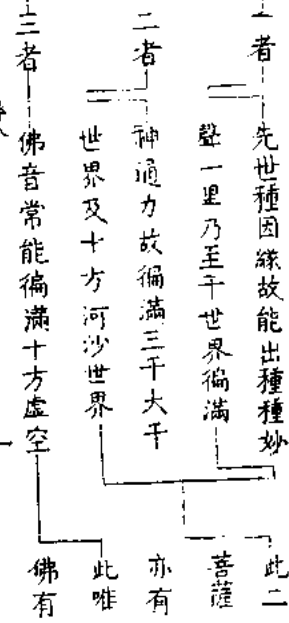 一者
先世種因緣故能出種種妙
聲一里乃至千世界徧滿
二者
神通力故徧滿三千大千
世界及十方河沙世界
三者
佛音常能徧滿十方虛空
此二
菩薩
亦有
此唯
佛有